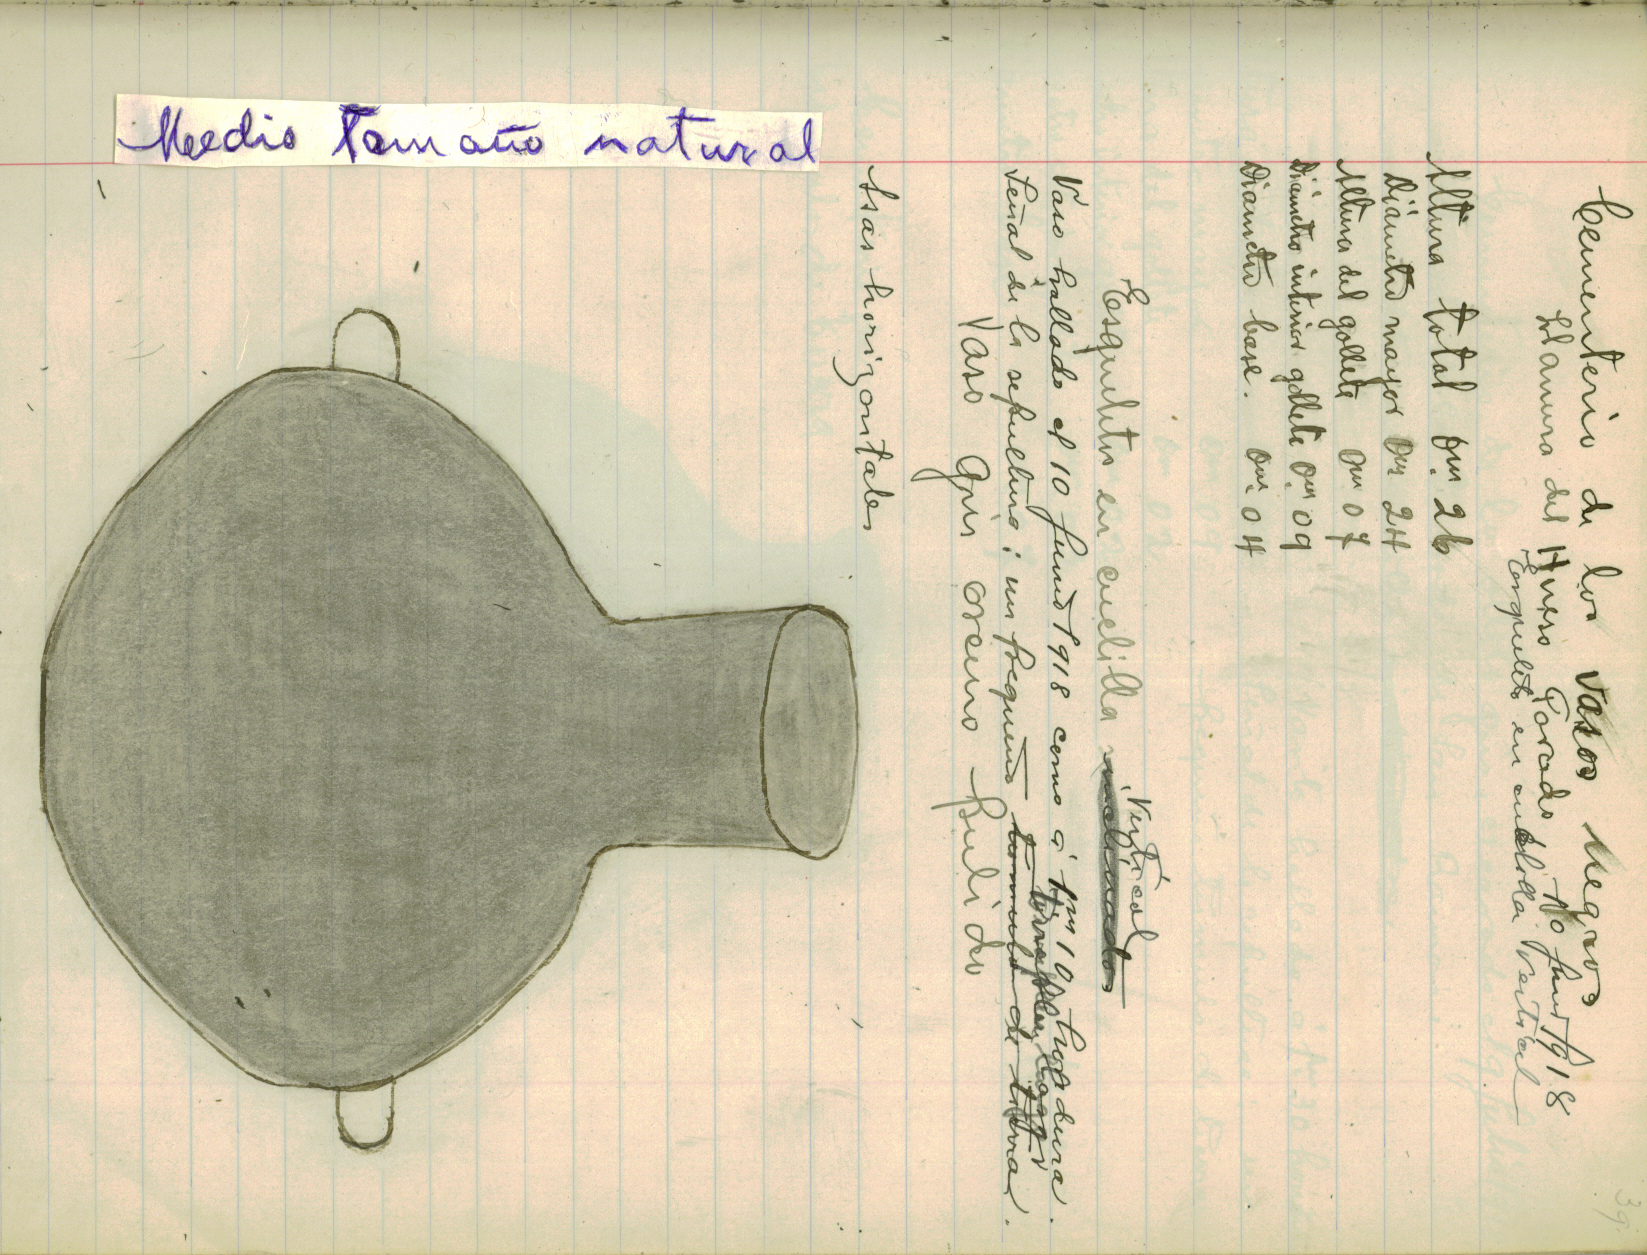 Cementerio de los vasos Negros
Llanura del Hueso Parado 10 Junio 1918
Esqueleto en cuclilla Vertical
Altura total 0m. 26
Diámetro mayor 0m. 24
Altura del gollete 0m 07
Diámetro interior gollete 0m 09
Diametro base. 0m. 04
Vertical
Esqueleto en cuclilla
Vaso hallado el 10 Junio 1918 como á 1m 10 hondura.
Señal de la sepultura: un pequeño tumulo de tierra.
Vaso Gris oscuro Pulido
Asas horizontales
Medio tamaño natural
39